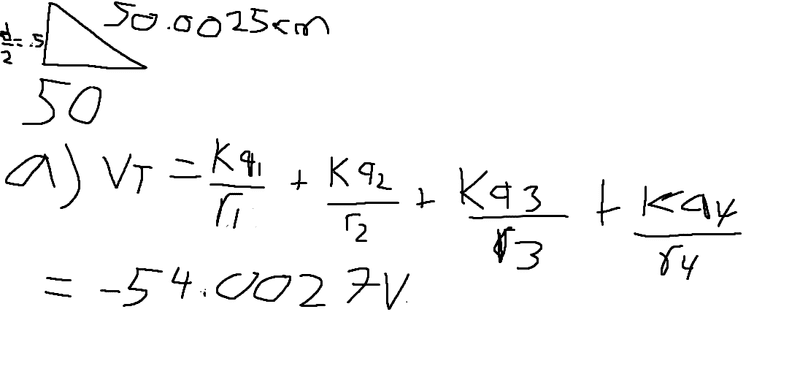 50.0025cm
d/2 = .5
50
a) VT = Kq1/r1 + Kq2/r2 + Kq3/r3 + Kq4/r4
= -54.0027V